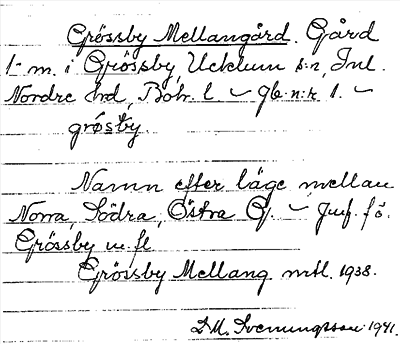 Grössby Mellangård. Gård
1 m. i Grössby, Ucklum s:n, Inl.
Nordre hd, Boh. l. – gb:n:r 1. –
grøsby.
Namn efter läge mellan
Norra, Södra, Östra G. – Jmf. fö.
Grössby m. fl.
Grössby Mellang mtl. 1938.
D.M. Svenungsson 1941.